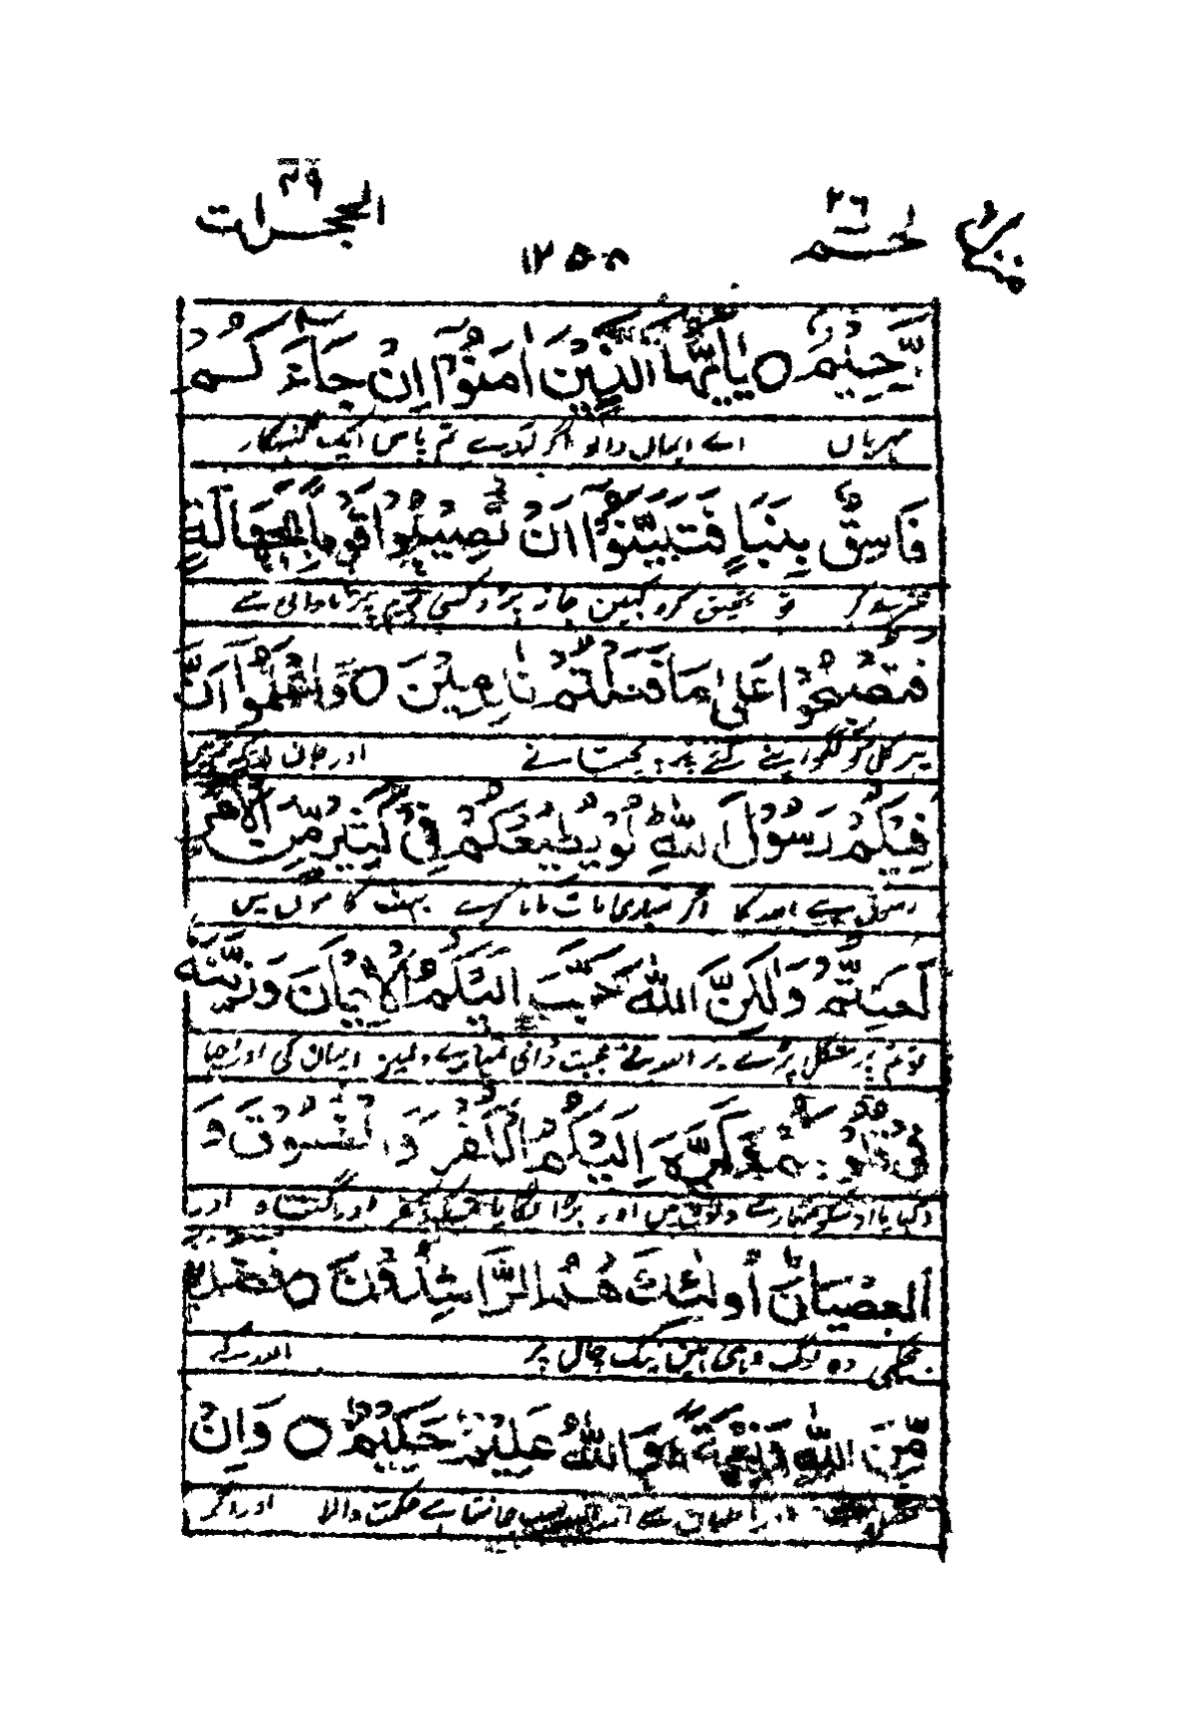 الحجرات ٤٩
١٢٥٨
حٰمٓ ٢٦
رَّحِيْمٌ ○ يٰۤاَيُّهَا الَّذِيْنَ اٰمَنُوْۤا اِنْ جَآءَكُمْ
مہربان اے ایمان والو اگر آوے تم پاس ایک گنہگار
فَاسِقٌۢ بِنَبَاٍ فَتَبَيَّنُوْۤا اَنْ تُصِيْبُوْا قَوْمًۢا بِجَهَالَةٍ
خبر لے کر تو تحقیق کرو کہیں جا نہ پڑو کسی قوم پر نادانی سے
فَتُصْبِحُوْا عَلٰى مَا فَعَلْتُمْ نٰدِمِيْنَ ○ وَاعْلَمُوْۤا اَنَّ
پھر کل کو لگو اپنے کئے پر پچتانے اور جان لو کہ تم میں
فِيْكُمْ رَسُوْلَ اللّٰهِ لَوْ يُطِيْعُكُمْ فِيْ كَثِيْرٍ مِّنَ الْاَمْرِ
رسول ہے اللہ کا اگر تمہاری بات مانا کرے بہت کاموں میں
لَعَنِتُّمْ وَلٰكِنَّ اللّٰهَ حَبَّبَ اِلَيْكُمُ الْاِيْمَانَ وَزَيَّنَهٗ
تو تم پر مشکل پڑے پر اللہ نے محبت ڈالی تمہارے دلمیں ایمان کی اور اچھا
فِيْ قُلُوْبِكُمْ وَكَرَّهَ اِلَيْكُمُ الْكُفْرَ وَالْفُسُوْقَ وَ
دکھایا اسکو تمہارے دلوں میں اور برا لگایا تم کو کفر اور گناہ اور
الْعِصْيَانَ اُولٰٓئِكَ هُمُ الرّٰشِدُوْنَ ○ فَضْلًا
بےحکمی وہ لوگ وہی ہیں نیک چال پر اللہ کے
مِّنَ اللّٰهِ وَنِعْمَةً وَاللّٰهُ عَلِيْمٌ حَكِيْمٌ ○ وَاِنْ
فضل اور احسان سے اللہ سب جانتا ہے حکمت والا اور اگر